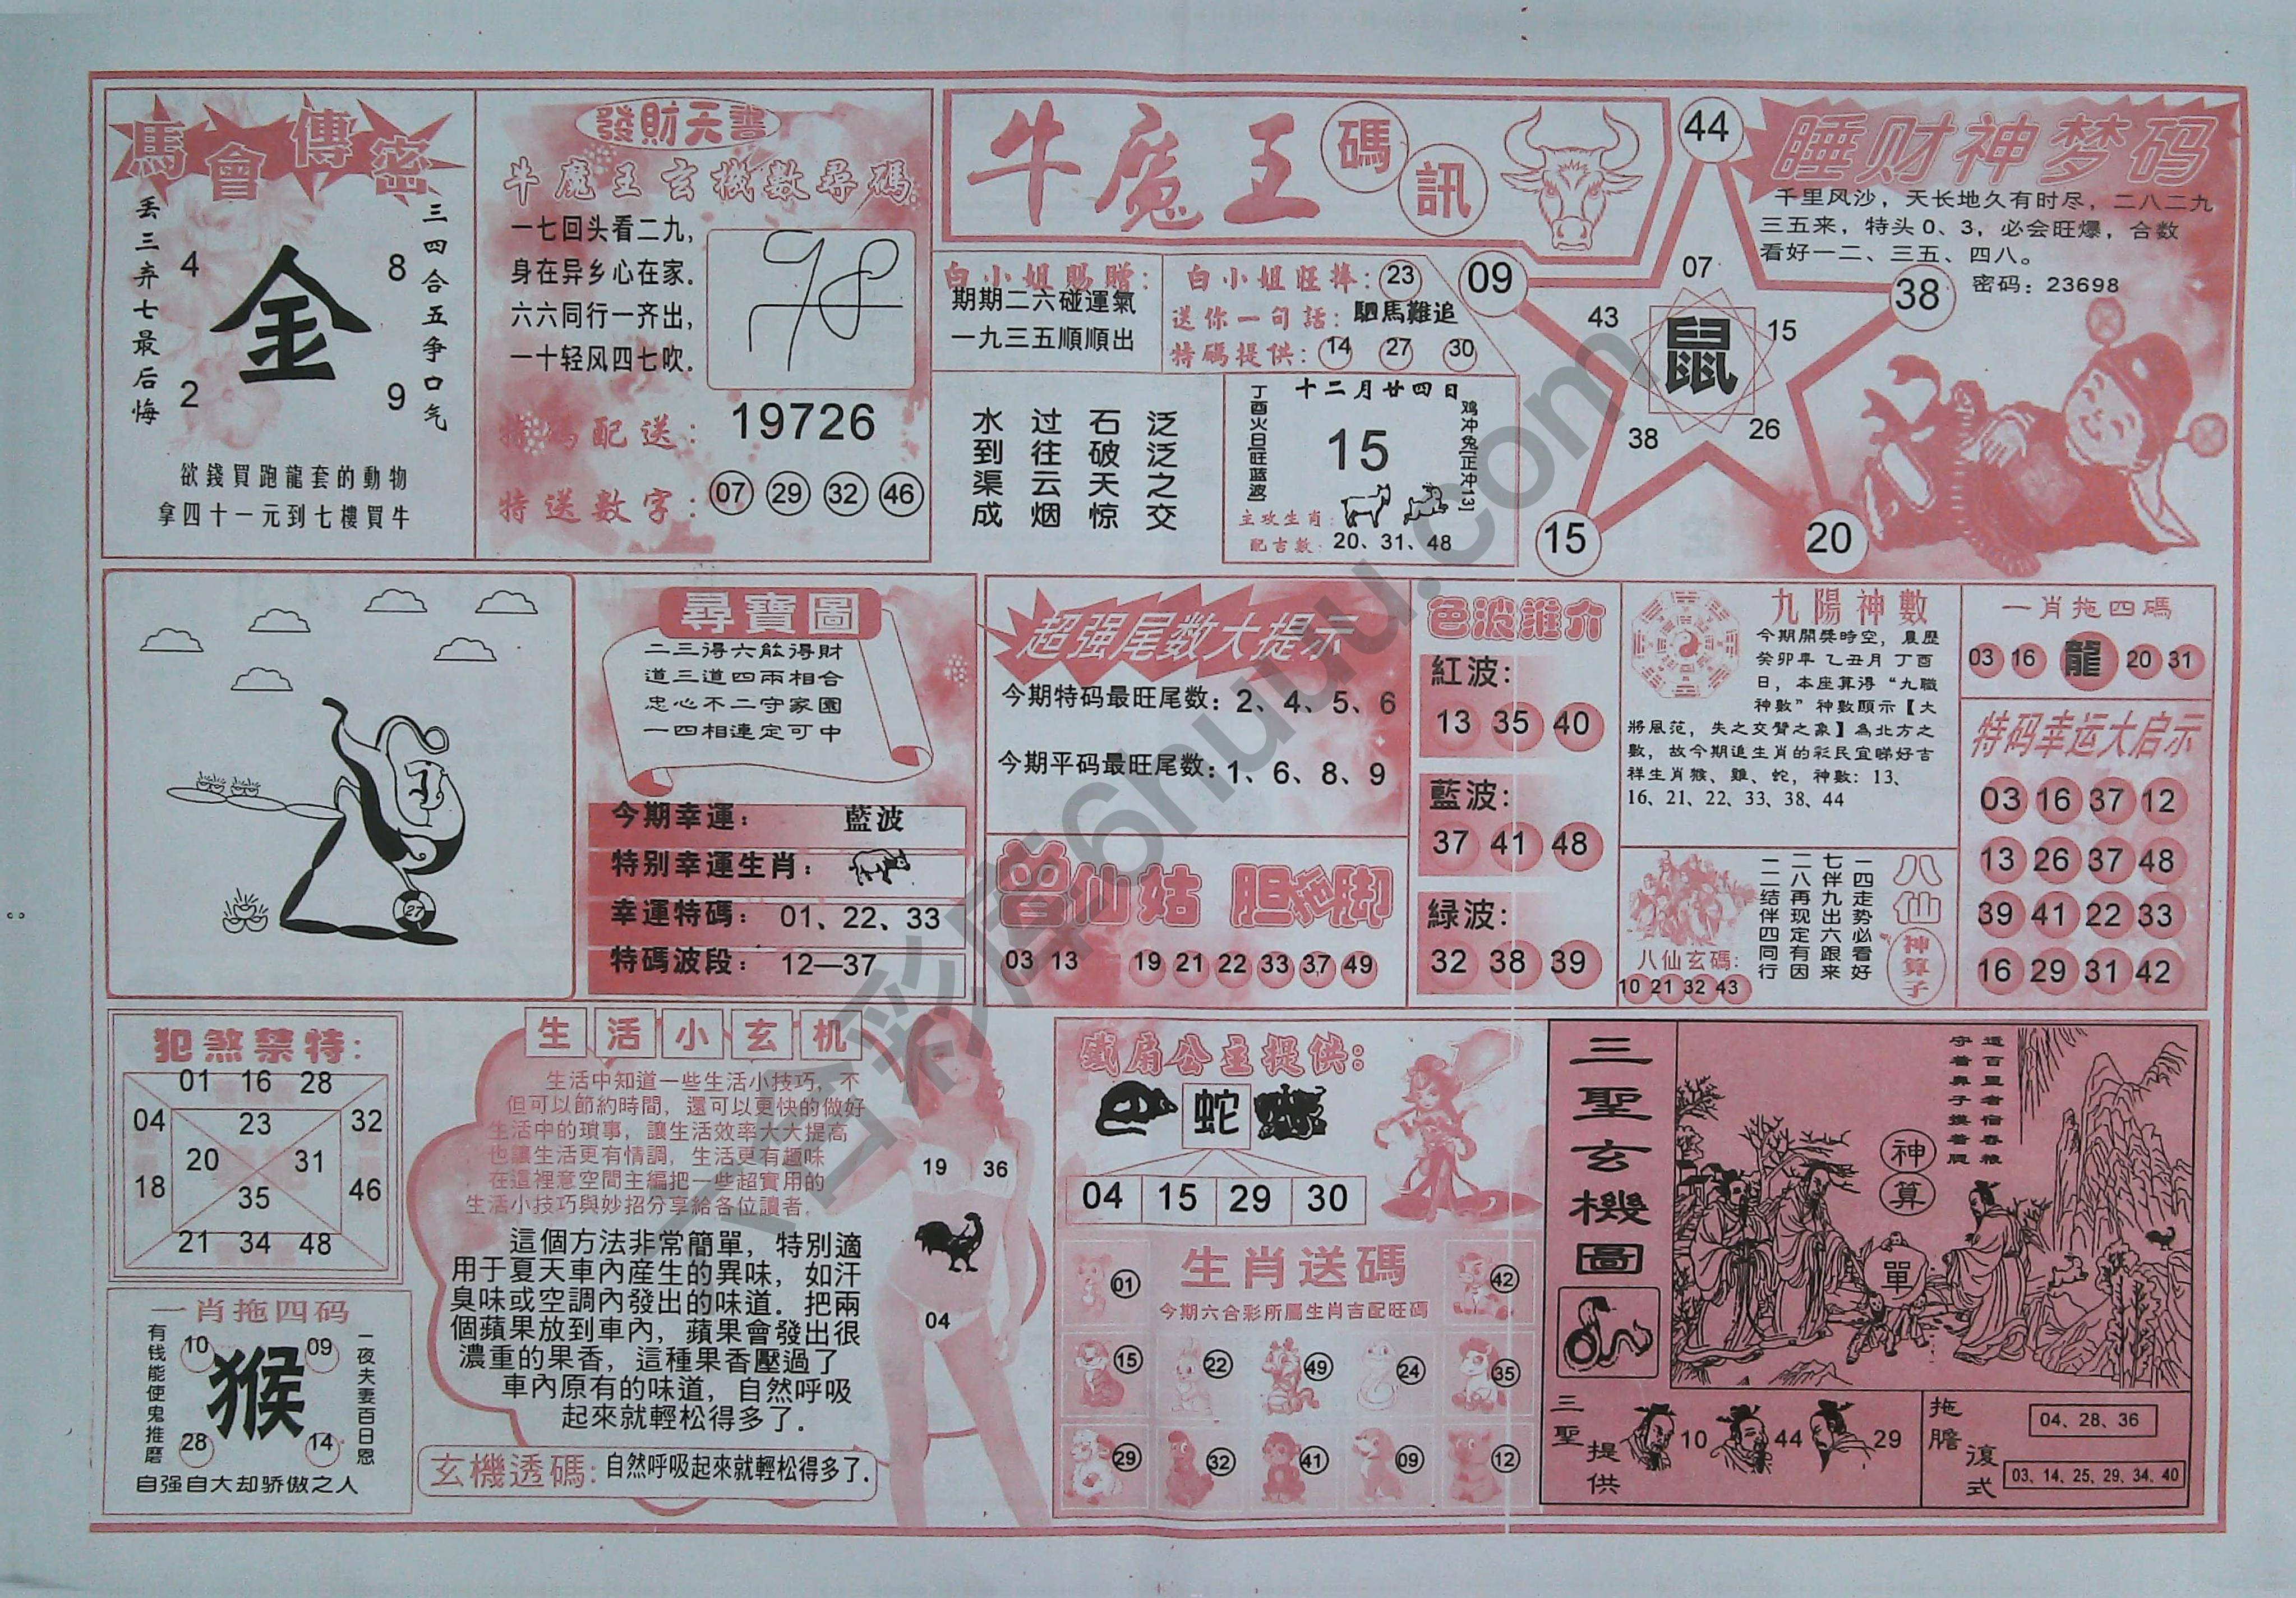 馬會傳密
三四合五争口气
丢三弃七最后悔
4 8
金
2 9
欲錢買跑龍套的動物
拿四十一元到七樓買牛
發財天書
牛魔王玄機數尋碼
一七回头看二九,
身在异乡心在家.
六六同行一齐出,
一十轻风四七吹.
特碼配送: 19726
特送數字: 07 29 32 46
牛魔王碼訊
白小姐賜贈:
期期二六碰運氣
一九三五順順出
白小姐旺捧: 23
送你一句話: 駟馬難追
特碼提供: 14 27 30
泛泛之交
石破天惊
过往云烟
水到渠成
十二月廿四日
丁酉火日[旺蓝波]
15
鸡冲兔[正冲13]
主攻生肖:
配吉數: 20、31、48
44
09
38
15
20
07
43
15
鼠
38
26
睡财神梦码
千里风沙，天长地久有时尽，二八二九
三五来，特头0、3，必会旺爆，合数
看好一二、三五、四八。
密码：23698
27
尋寶圖
二三得六能得財
道三道四兩相合
忠心不二守家園
一四相連定可中
今期幸運： 藍波
特别幸運生肖：
幸運特碼： 01、22、33
特碼波段： 12—37
超强尾数大提示
今期特码最旺尾数: 2、4、5、6
今期平码最旺尾数: 1、6、8、9
曾仙姑 胆拖脚
03 13 19 21 22 33 37 49
色波推介
紅波:
13 35 40
藍波:
37 41 48
緑波:
32 38 39
九陽神數
今期開獎時空，農歷
癸卯年 乙丑月 丁酉
日，本座算得“九職
神數”神數顯示【大
將風范，失之交臂之象】為北方之
數，故今期追生肖的彩民宜睇好吉
祥生肖猴、雞、蛇，神數: 13、
16、21、22、33、38、44
八仙神算子
一四走势必看好
七伴九出六跟来
二八再现定有因
二二结伴四同行
八仙玄碼:
10 21 32 43
一肖拖四碼
03 16 龍 20 31
特码幸运大启示
03 16 37 12
13 26 37 48
39 41 22 33
16 29 31 42
犯煞禁特:
01 16 28
04 23 32
20 31
18 35 46
21 34 48
一肖拖四码
一夜夫妻百日恩
有钱能使鬼推磨
10 09
猴
28 14
自强自大却骄傲之人
生活小玄机
生活中知道一些生活小技巧，不
但可以節約時間，還可以更快的做好
生活中的瑣事，讓生活效率大大提高
也讓生活更有情調，生活更有趣味
在這裡意空間主編把一些超實用的
生活小技巧與妙招分享給各位讀者。
這個方法非常簡單，特別適
用于夏天車內産生的異味，如汗
臭味或空調內發出的味道．把兩
個蘋果放到車內，蘋果會發出很
濃重的果香，這種果香壓過了
車內原有的味道，自然呼吸
起來就輕松得多了．
玄機透碼: 自然呼吸起來就輕松得多了.
19 36
04
鐵扇公主提供:
蛇
04 15 29 30
生肖送碼
今期六合彩所屬生肖吉配旺碼
01 42
15 22 49 24 35
29 32 41 09 12
三聖玄機圖
這百里者宿春粮
守着鼻子摸着腮
神算
單
三聖提供
10 44 29
拖膽
04、28、36
復式
03、14、25、29、34、40
六合彩库6huuu.com